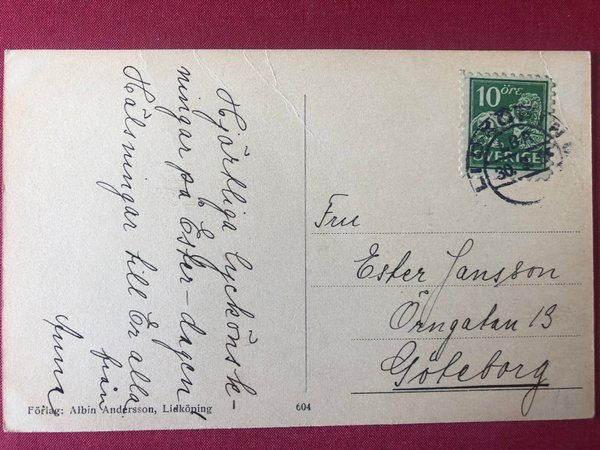 Hjärtliga lyckönsk-
ningar på Ester-dagen!
Hälsningar till Er alla
från
Anna
10 ÖRE
SVERIGE
Fru
Ester Jansson
Örngatan 13
Göteborg
Förlag: Albin Andersson, Lidköping
604